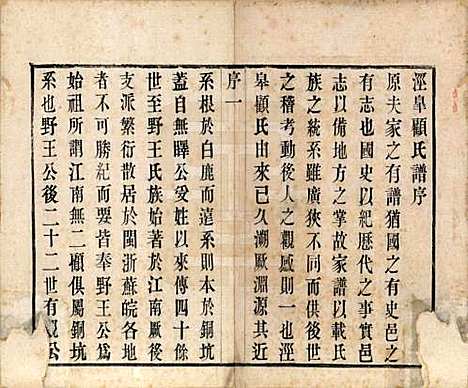 涇皐顧氏譜序
原夫家之有譜猶國之有史邑之
有志也國史以紀歷代之事實邑
志以備地方之掌故家譜以載氏
族之統系雖廣狹不同而供後世
之稽考動後人之觀感則一也涇
皐顧氏由來已久溯厥淵源其近
序一
系根於白鹿而遠系則本於銅坑
蓋自無驛公受姓以來傳四十餘
世至於野王氏族始著於江南厥後
支派繁衍散居於閩浙蘇皖各地
者不可勝紀而皆奉野王公為
始祖所謂江南無二顧俱屬銅坑
系也野王公後二十二世有公